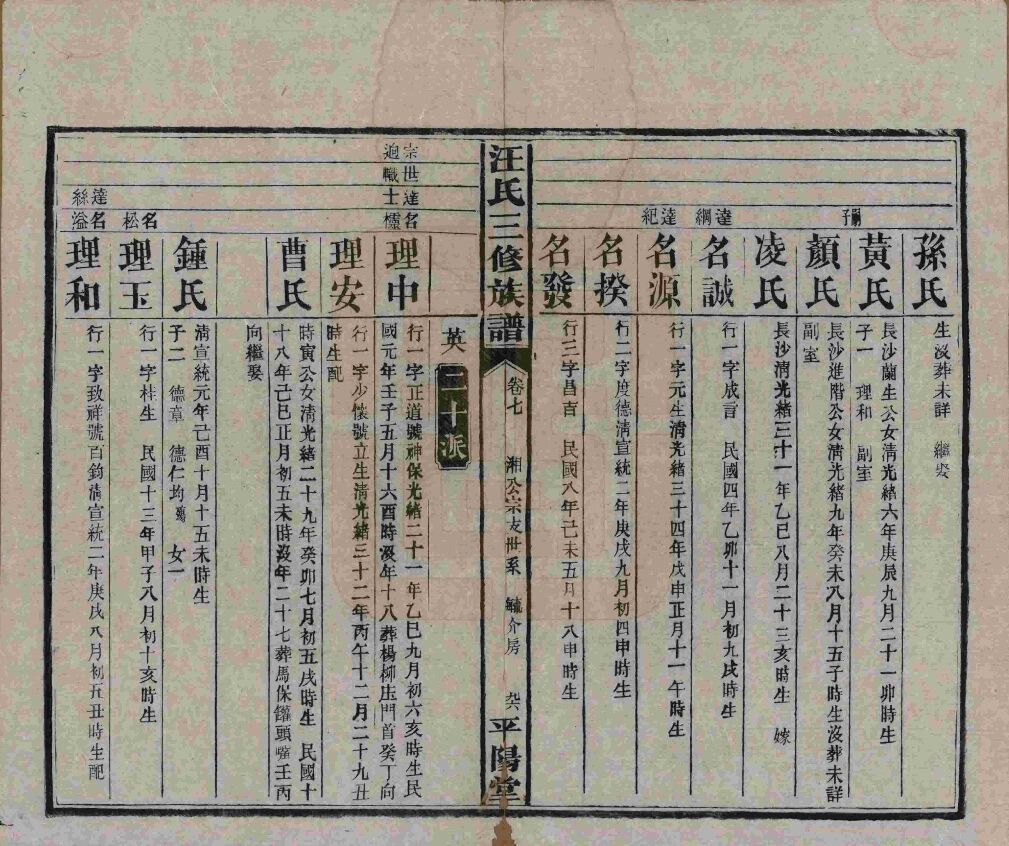 孫氏
生沒葬未詳 繼娶
黃氏
長沙蘭生公女清光緒六年庚辰九月二十一卯時生
子一 理和 副室
嗣子
顏氏
長沙進階公女清光緒九年癸未八月十五子時生沒葬未詳
副室
凌氏
長沙清光緒三十一年乙巳八月二十三亥時生 嫁
達綱
名誠
行一字成言 民國四年乙卯十一月初九戌時生
達紀
名源
行一字元生清光緒三十四年戊申正月十一午時生
名揆
行二字度德清宣統二年庚戌九月初四申時生
名發
行三字昌言 民國八年己未五月十八申時生
汪氏三修族譜
卷七
湘公宗支世系 毓介房
平陽堂
英二十派
宗世達名
迥職士
理中
行一字正道號神保光緒二十一年乙巳九月初六亥時生民
國元年壬子五月十六酉時沒年十八葬楊柳庄門首癸丁向
理安
行一字少懷號立生清光緒三十二年丙午十二月二十九丑
時生配
曹氏
時寅公女清光緒二十九年癸卯七月初五戌時生 民國十
十八年己巳正月初五未時沒年二十七葬馬保鑵頭壬丙
向繼娶
鍾氏
清宣統元年己酉十月十五未時生
子二 德章 德仁均殤 女一
名松
理玉
行一字桂生 民國十三年甲子八月初十亥時生
達絲
名溢
理和
行一字致祥號百鈞清宣統二年庚戌八月初五丑時生配